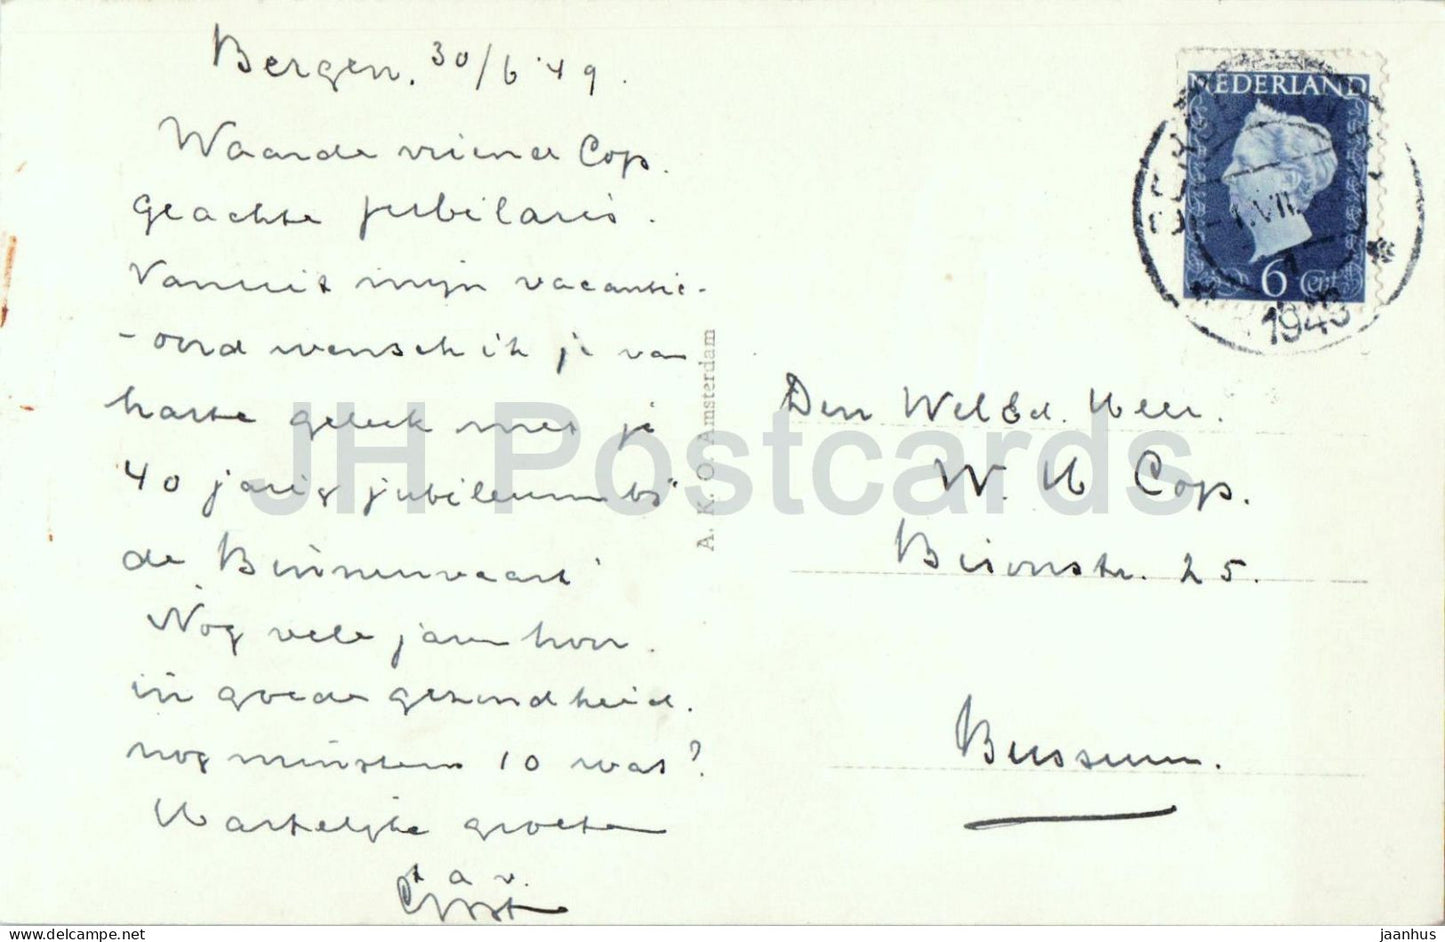 Bergen. 30/6 '49.
Waarde vriend Cop.
Geachte jubilaris.
Vanuit mijn vacantie-
-oord wensch ik je van
harte geluk met je
40 jarig jubileum bij
de "Binnenvaart"
Nog vele jaren hoor.
in goede gezondheid.
nog minstens 10 wat?
Hartelijke groeten
t.a.v.
A. K. O. Amsterdam
NEDERLAND
6 Cent
1.VII
1949
Den WelEd. Heer.
W. H Cop.
Bisonstr. 25.
Bussum.
JH Postcards
www.delcampe.net
jaanhus